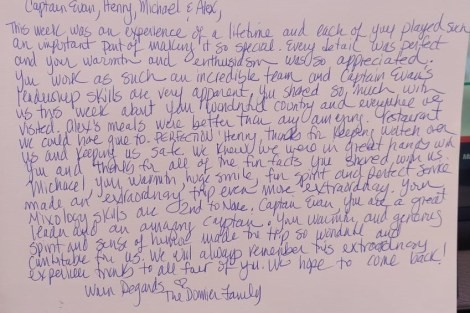 Captain Evan, Henry, Michael & Alex,
This week was an experience of a lifetime and each of you played such
an important part of making it so special. Every detail was perfect
and your warmth and enthusiasm was so appreciated.
You work as such an incredible team and Captain Evan's
leadership skills are very apparent. You shared so much with
us this week about your wonderful country and everywhere we
visited. Alex's meals were better than any amazing restaurant
we could have gone to. PERFECTION! Henry, thanks for keeping watch over
us and keeping us safe. We knew we were in great hands with
you and thanks for all of the fun facts you shared with us.
Michael, your warmth, huge smile, fun spirit and perfect service
made an extraordinary trip even more extraordinary. Your
Mixology skills are second to none. Captain Evan you are a great
leader and an amazing captain. Your warmth, and generous
spirit and sense of humor made the trip so wonderful and
comfortable for us. We will always remember this extraordinary
experience thanks to all four of you. We hope to come back!
Warm Regards
The Family